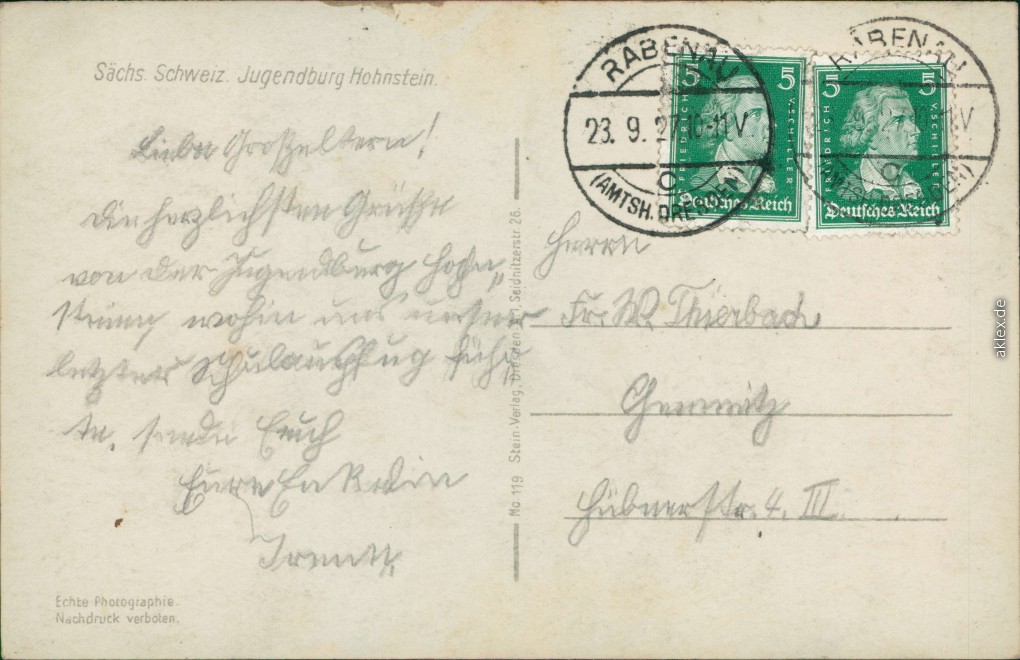 Sächs. Schweiz. Jugendburg Hohnstein.
Liebe Großeltern!
Die herzlichsten Grüße
von der Jugendburg Hohn„
stein, wohin uns unser
letzter Schulausflug führ„
te, sendet Euch
Eure Enkelin
RABENAU
23. 9. 27.10-11V
(AMTSH. DRESDEN)
5 5
FRIEDRICH V. SCHILLER
Deutsches Reich
RABENAU
5 5
FRIEDRICH V. SCHILLER
Deutsches Reich
Herrn
Fr. W. Thierbach
Chemnitz
Hübnerstr. 4. III.
No. 119 Stein-Verlag, Dresden Seidnitzerstr. 26.
Echte Photographie.
Nachdruck verboten.
aklex.de